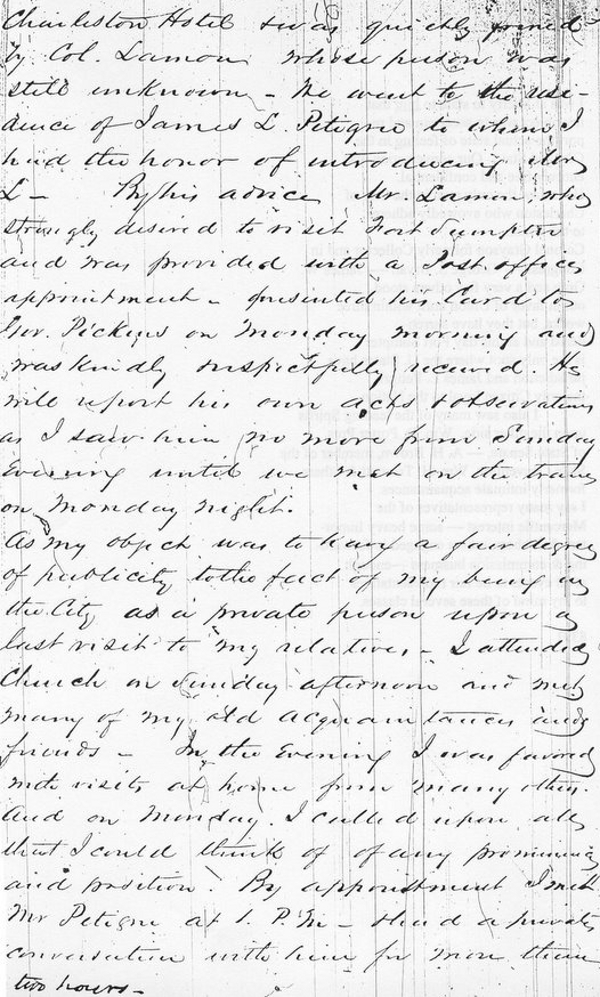 Charleston Hotel & was quickly joined
by Col. Lamon whose person was
still unknown - We went to the resi-
dence of James L. Petigru to whom I
had the honor of introducing Mr
L - By his advice Mr. Lamon, who
strongly desired to visit Fort Sumpter
and was provided with a Post office
appointment - presented his Card to
Gov. Pickens on Monday morning and
was kindly & respectfully received. He
will report his own acts & observations
as I saw him no more from Sunday
Evening until we met on the train
on Monday night.
As my object was to have a fair degree
of publicity to the fact of my being in
the City as a private person upon a
last visit to my relatives - I attended
Church on Sunday afternoon and met
many of my old acquaintances and
friends - In the Evening I was favored
with visits at home from many others.
And on Monday I called upon all
that I could think of of any prominence
and position. By appointment I met
Mr Petigru at 1. P. M - & had a private
conversation with him for more than
two hours -